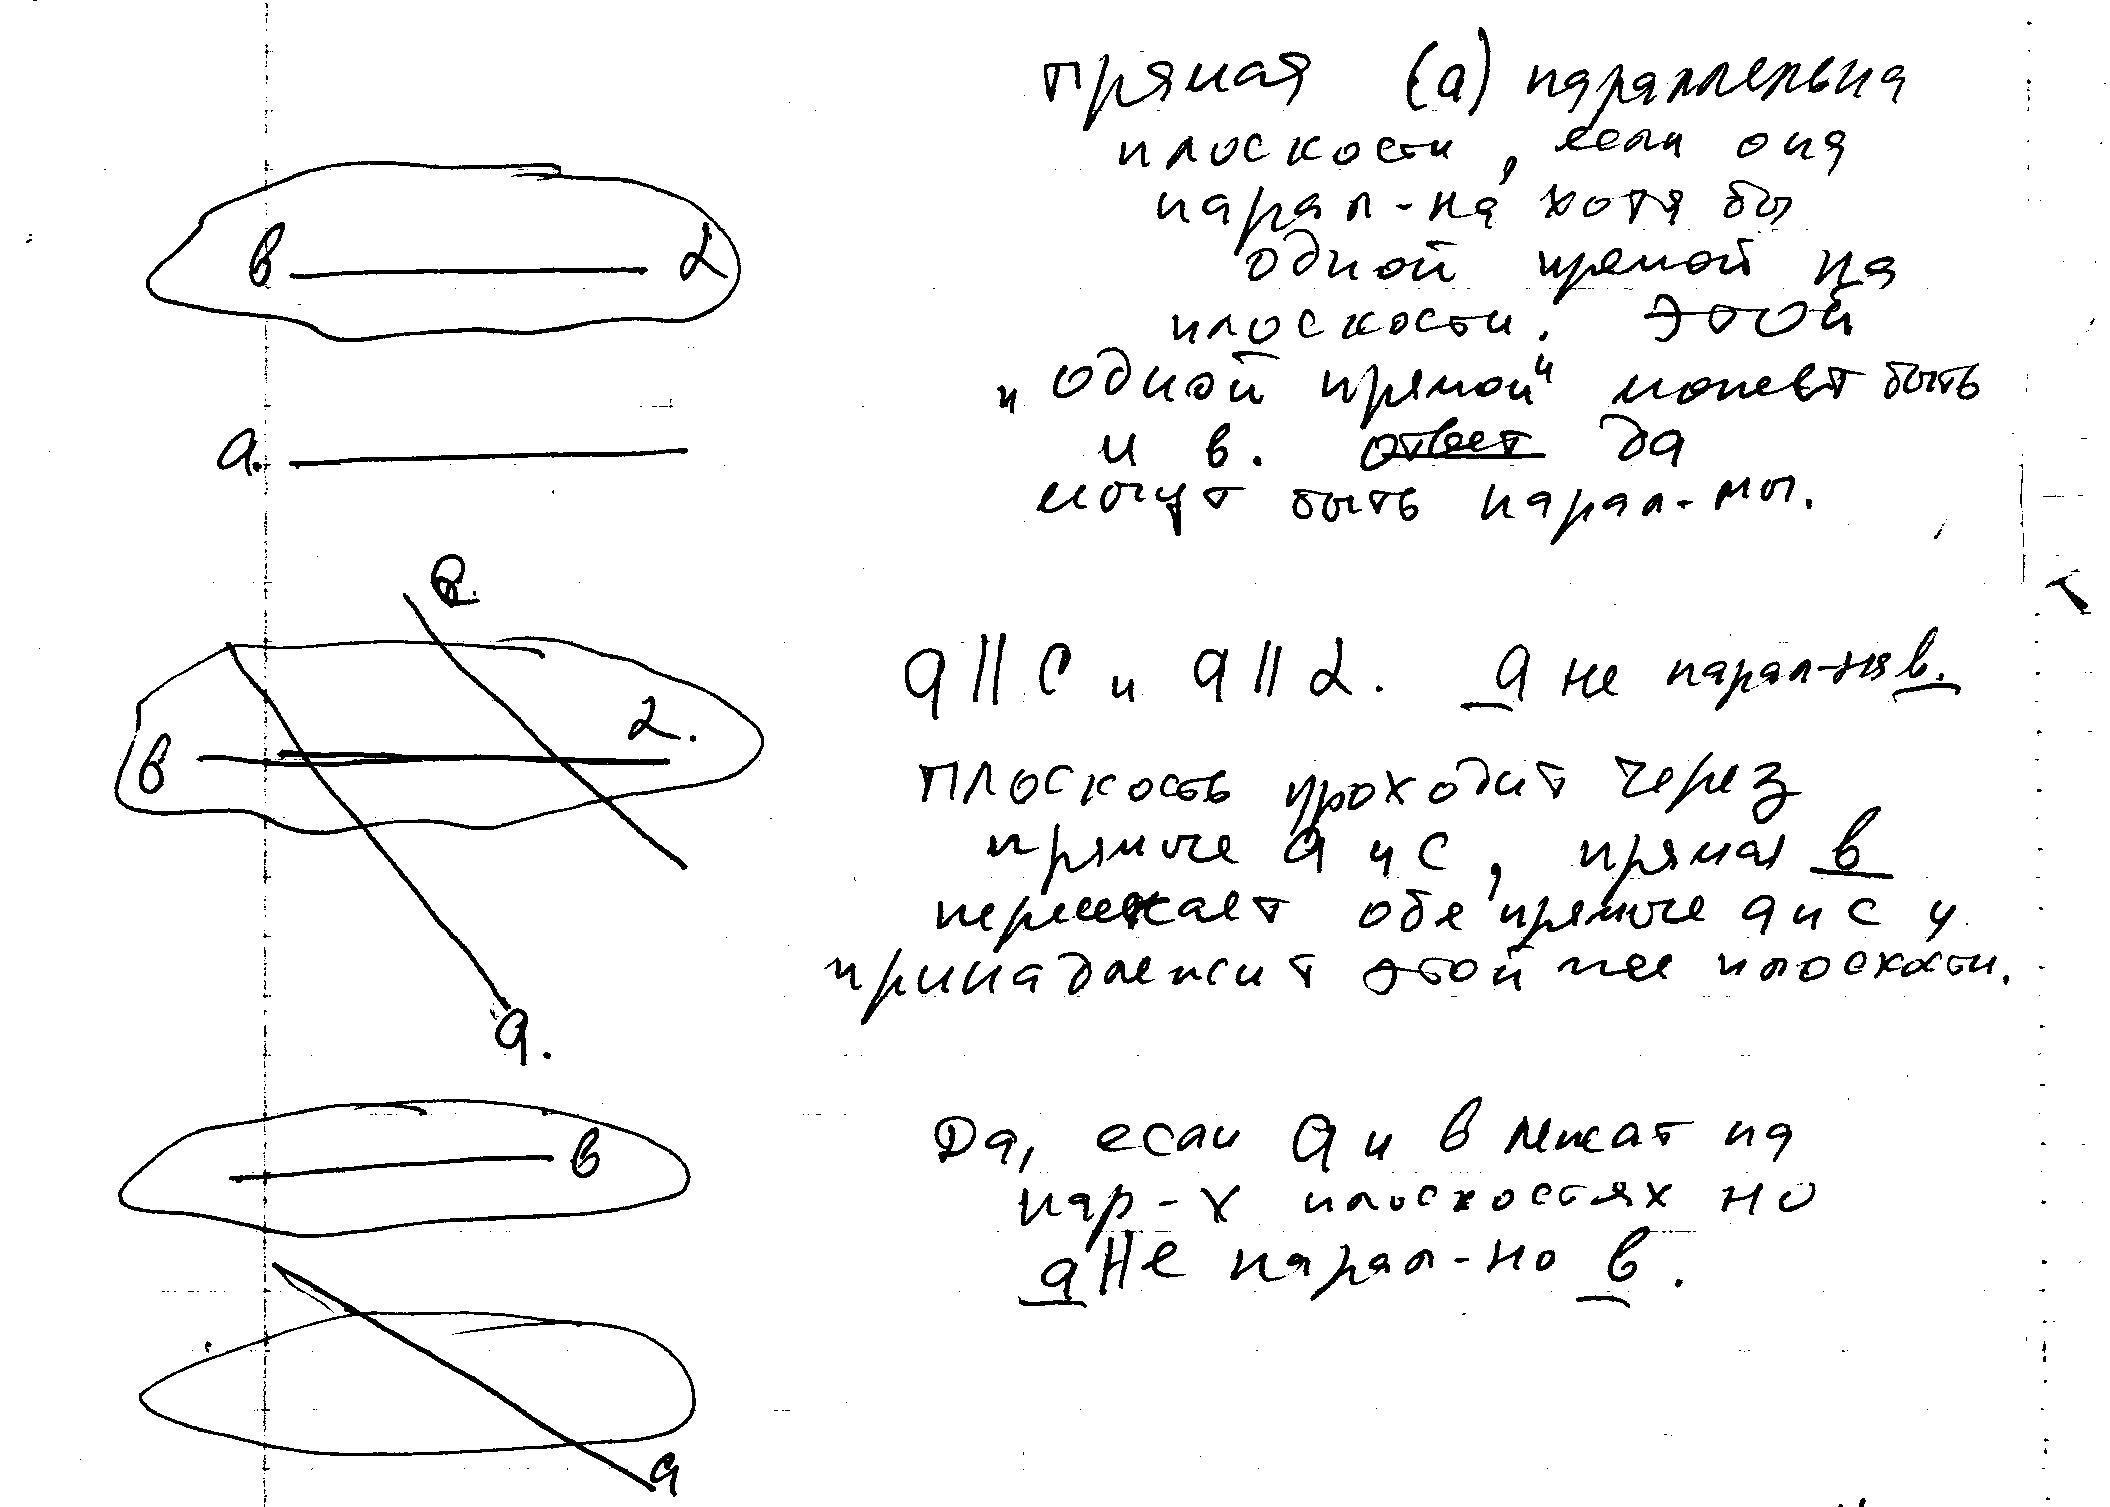 прямая (а) параллельна
плоскости, если она
парал-на хотя бы
одной прямой на
плоскости. Этой
"одной прямой" может быть
и в. ответ да
могут быть парал-ны.
в α
а.
а || с и а || α. а не парал-на в.
α.
в
плоскость проходит через
прямые а и с, прямая в
пересекает обе прямые а и с и
принадлежит этой же плоскости.
а.
Да, если а и в лежат на
пар-х плоскостях но
а не парал-но в.
в
а